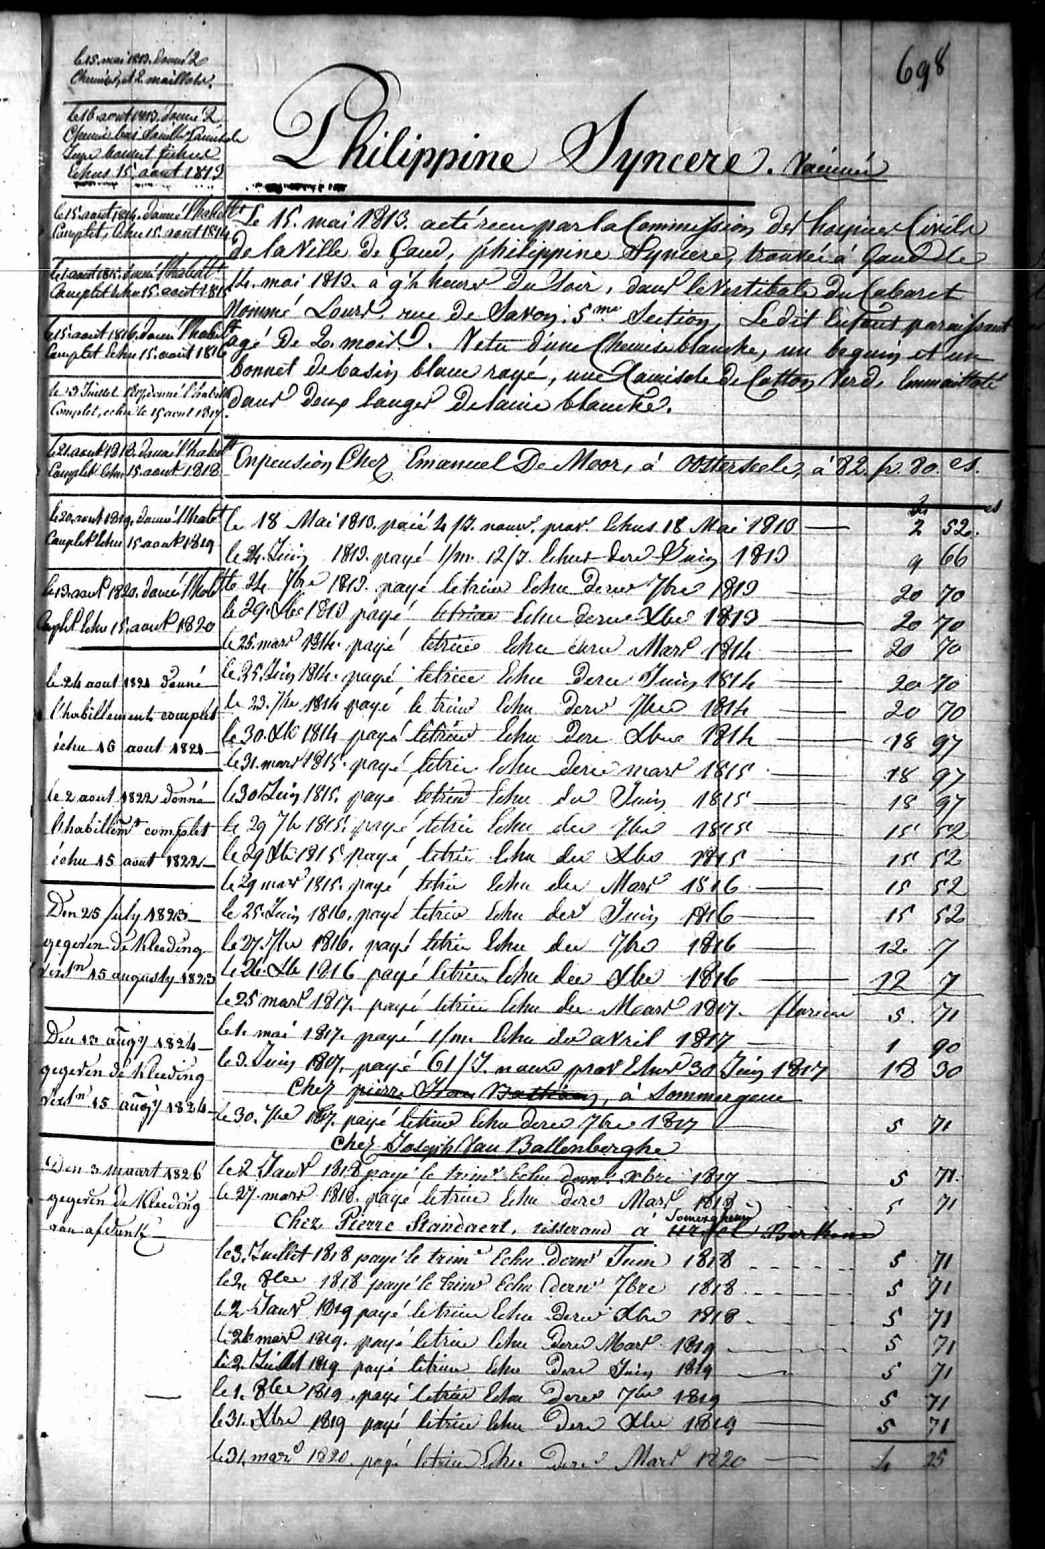 698
le 15. mai 1813. donné 2
Chemises, et 2. maillots.
le 16. aout 1813. donné 2
Chemise bas Camisole
Jupe bonnet fichus
Echus 15. aout 1813
Philippine Syncere. Vacciné
le 15. aout 1814. donné l'habillt
Complet, Echu 15. aout 1814
le 1 aout 1815. donné l'habillt
Complet Echu 15. aout 1815
le 15. aout 1816. donné l'habillt
Complet Echu 15. aout 1816
le 23 Juillet 1817 donné l'habillt
Complet, echu le 15 aout 1817.
le 21. aout 1818. donné l'habillt
Complet Echu 15. aout 1818.
le 20. aout 1819. donné l'habillt
Complet Echu 15. aout 1819
le 13. aout 1820. donné l'habillt
Complet Echu 15. aout 1820
le 24 aout 1821 donné
l'habillement complet
échu 15 aout 1821
le 2 aout 1822 donné
l'habillemt complet
échu 15 aout 1822
Den 25 July 1823
gegeven de Kleeding
verstn 15 augusty 1823
Den 13 augy 1824
gegeven de Kleeding
verstn 15 augy 1824
Den 3 maart 1826
gegeven de Kleeding
van afdank
Le 15. mai 1813. acté reçu par la Commission des hospices Civils
de la Ville de Gand, philippine Syncere, trouvée à Gand le
14. mai 1813. a 9 ½ heures du Soir, dans le Vestibule du Cabaret
Nommé Lours rue de Savon. 5me Section, Le dit Enfant paraissant
agé de 2. mois. Vetu d'une Chemise blanche, un beguin et un
bonnet de basin blanc raye, une Camisole de Cotton Verd, Emmaillotté
dans deux langes de laine blanche.
Enpension Chez Emanuel De Moor, à Oosterseele, à 82. fr. 80. cs.
le 18 Mai 1813. paié 4 fs. nour. prov. Echus 18 Mai 1813 2 52.
le 24. Juin 1813. payé 1/m. 12/J. Echus dere Juin 1813 9 66
le 24 7bre 1813. payé le trim Echu dere 7bre 1813 20 70
le 29. Xbre 1813 payé le trim Echu dere Xbre 1813 20 70
le 25. mars 1814. payé le trim Echu dere Mars 1814 20 70
le 25. Juin 1814. payé le trim Echu dere Juin 1814 20 70
le 23. 7bre 1814 payé le trim Echu dere 7bre 1814 20 70
le 30. Xbre 1814 payé le trim Echu dere Xbre 1814 18 97
le 31. mars 1815. payé le trim Echu dere mars 1815 18 97
le 30 Juin 1815. payé le trim Echu de Juin 1815 18 97
le 29 7bre 1815. payé le trim Echu de 7bre 1815 15 52
le 29 Xbre 1815 payé le trim Echu de Xbre 1815 15 52
le 29 mars 1816. payé le trim Echu de Mars 1816 15 52
le 25. Juin 1816. payé le trim Echu der Juin 1816 15 52
le 27. 7bre 1816. payé le trim Echu de 7bre 1816 12 7
le 26. Xbre 1816 payé le trim Echu de Xbre 1816 12 7
le 25 mars 1817. payé le trim Echu de Mars 1817. florins 5 71
le 1. mai 1817. payé 1/m. Echu de avril 1817 1 90
le 3. Juin 1817. payé 61/J. nour prov Echus 30 Juin 1817 18 30
Chez pierre à Sommergem
le 30. 7bre 1817. payé le trim Echu dere 7bre 1817 5 71
Chez Joseph Van Ballenberghe
le 2 Janvr 1818 payé le trimr Echu dernr Xbre 1817 5 71.
le 27. mars 1818. payé le trim Echu dere Mars 1818 5 71
Chez Pierre Standaert, tisserand à Somergem
le 3. Juillet 1818 payé le trimr Echu dernr Juin 1818 5 71
le 2 8bre 1818 payé le trimr Echu dernr 7bre 1818 5 71
le 2 Janvr 1819 payé le trim Echu dere Xbre 1818 5 71
le 26 mars 1819. payé le trim Echu dere Mars 1819 5 71
le 2. Juillet 1819 payé le trim Echu dere Juin 1819 5 71
le 1. 8bre 1819 payé le trim Echu dere 7bre 1819 5 71
le 31. Xbre 1819 payé le trim Echu dere Xbre 1819 5 71
le 31. mars 1820. payé le trim Echu dere Mars 1820 4 25